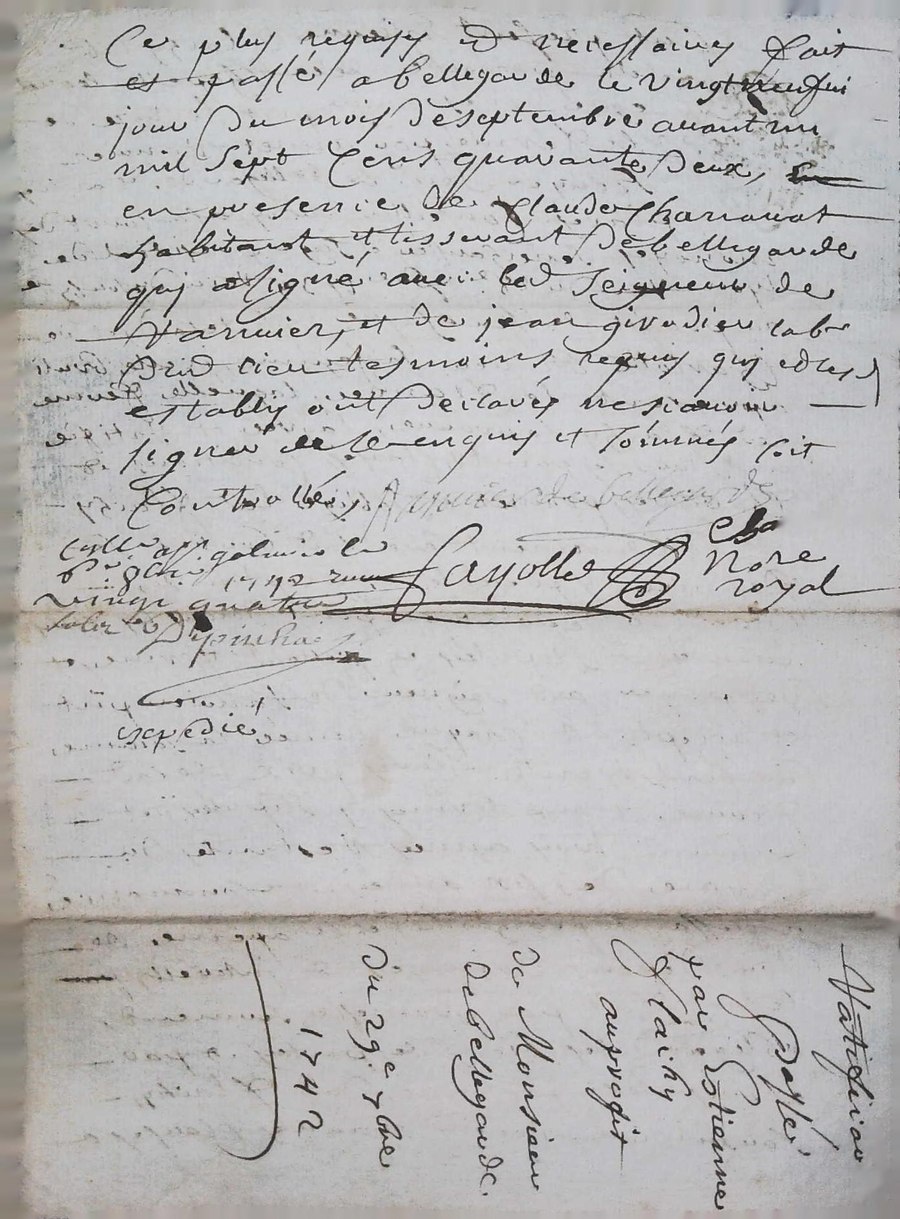 Ce plus requises et necessaires fait
et passé a bellegarde le vingtneufvi
jour du mois de septembre avant mi
mil sept Cens quarante deux,
en presence de Claude Charrouat
habitant et tisserant de bellegarde
qui a signé avec led. Seigneur de
et de jean girodier lab
dud. lieu tesmoins requis qui et les d
establis ont declarés ne scavoir
signer de ce enquis et sommés soit
Controllé,
de bellegarde
Fayolle
Nore
royal
Contllé a St galmier le
8bre 1742 recu
vingt quatre
solz
expedié
Ratifion
passé
par Estienne
Flachy
au profit
de Monsieur
de Bellegarde.
du 29e 7bre
1742